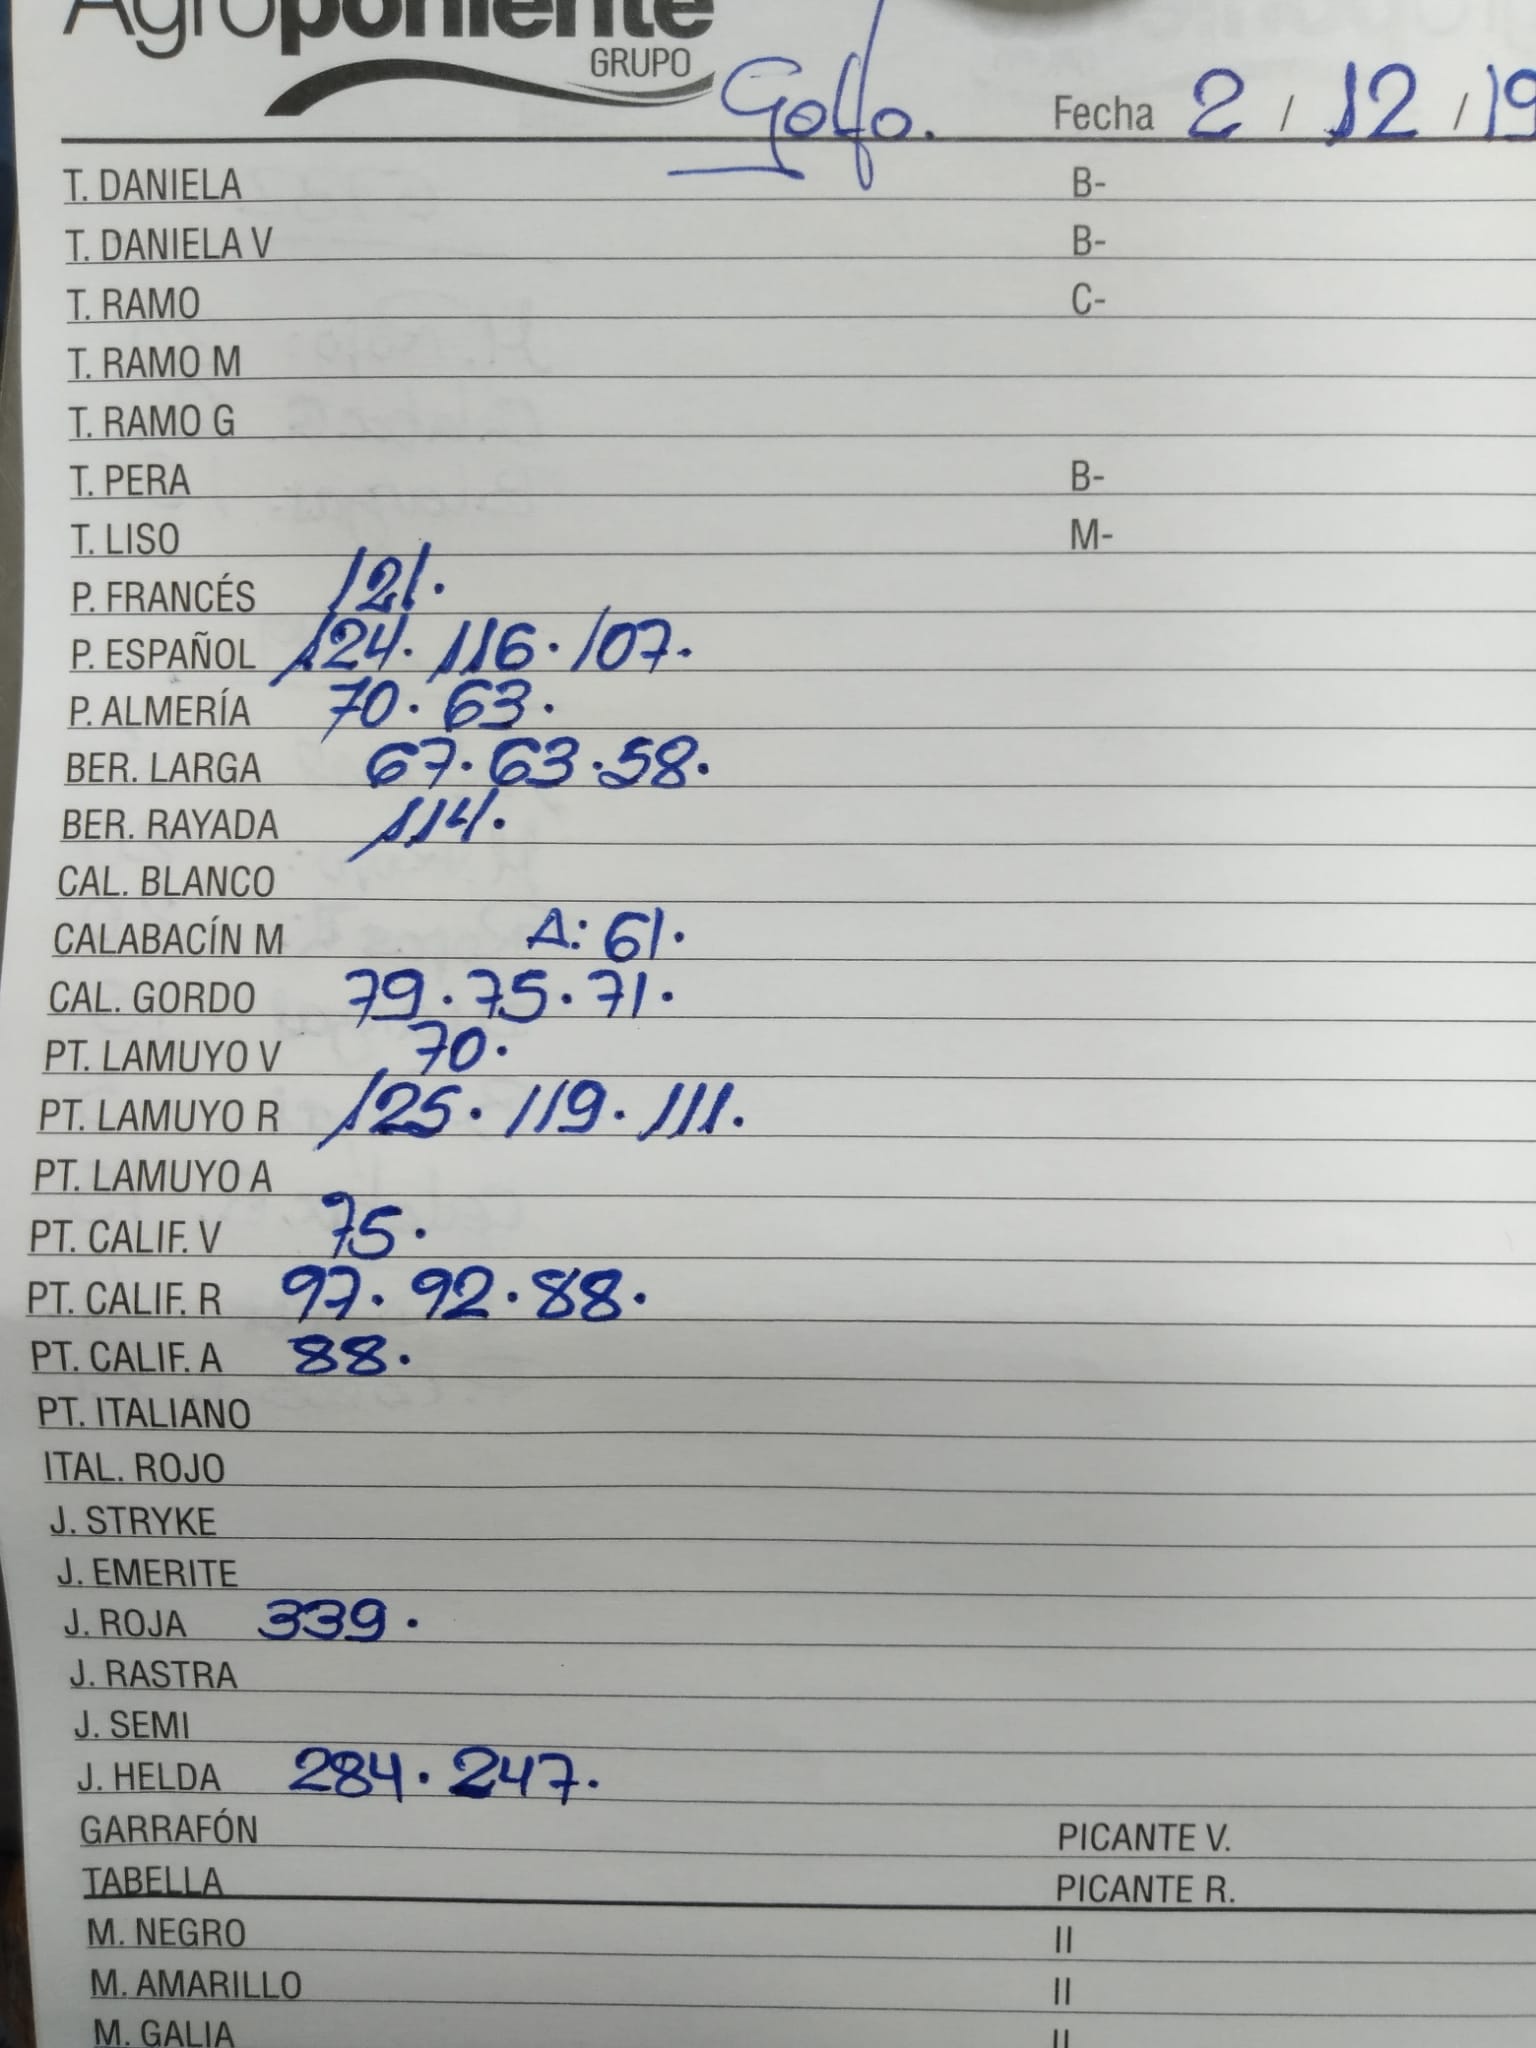 Agroponiente
GRUPO
Golfo. Fecha 2 / 12 / 19
T. DANIELA B-
T. DANIELA V B-
T. RAMO C-
T. RAMO M
T. RAMO G
T. PERA B-
T. LISO M-
P. FRANCÉS 121.
P. ESPAÑOL 124. 116. 107.
P. ALMERÍA 70. 63.
BER. LARGA 67. 63. 58.
BER. RAYADA 114.
CAL. BLANCO
CALABACÍN M A: 61.
CAL. GORDO 79. 75. 71.
PT. LAMUYO V 70.
PT. LAMUYO R 125. 119. 111.
PT. LAMUYO A
PT. CALIF. V 75.
PT. CALIF. R 97. 92. 88.
PT. CALIF. A 88.
PT. ITALIANO
ITAL. ROJO
J. STRYKE
J. EMERITE
J. ROJA 339.
J. RASTRA
J. SEMI
J. HELDA 284. 247.
GARRAFÓN PICANTE V.
TABELLA PICANTE R.
M. NEGRO II
M. AMARILLO II
M. GALIA II